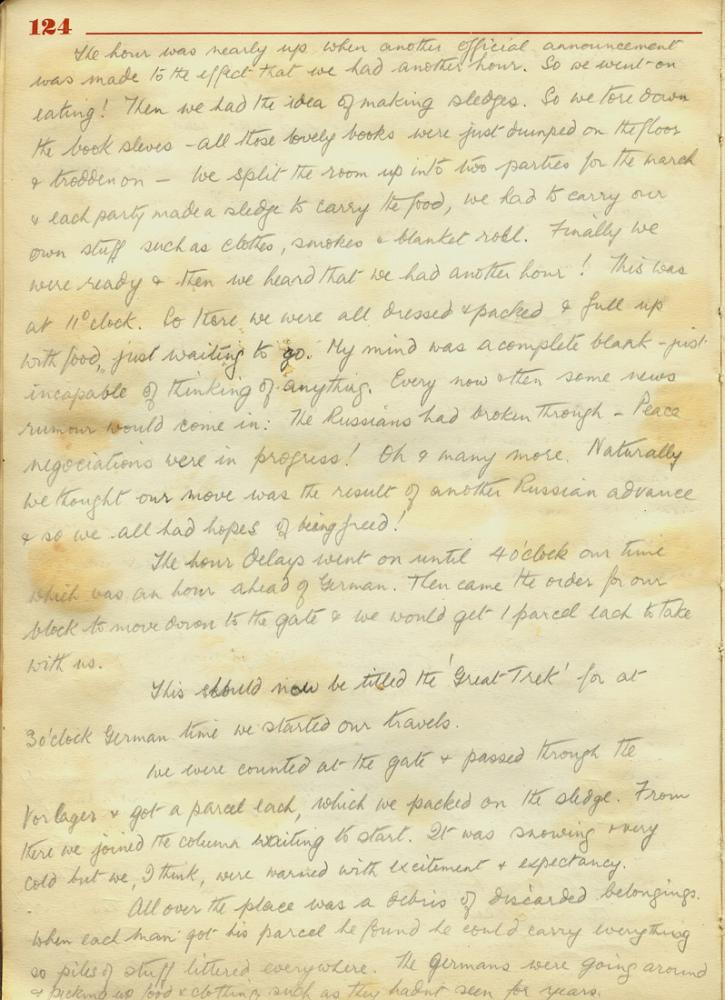 124
The hour was nearly up when another official announcement
was made to the effect that we had another hour. So we went on
eating! Then we had the idea of making sledges. So we tore down
the book sleves - all those lovely books were just dumped on the floor
& trodden on - We split the room up into two parties for the march
& each party made a sledge to carry the food, we had to carry our
own stuff such as clothes, smokes & blanket roll. Finally we
were ready & then we heard that we had another hour! This was
at 11 o'clock. So there we were all dressed & packed & full up
with food, just waiting to go. My mind was a complete blank - just
incapable of thinking of anything. Every now & then some news
rumour would come in: The Russians had broken through - Peace
negociations were in progress! Oh & many more. Naturally
we thought our move was the result of another Russian advance
& so we all had hopes of being freed!
The hour delays went on until 4 o'clock our time
which was an hour ahead of German. Then came the order for our
block to move down to the gate & we would get 1 parcel each to take
with us.
This should now be titled the 'Great Trek' for at
3 o'clock German time we started our travels.
We were counted at the gate & passed through the
Vorlager & got a parcel each, which we packed on the sledge. From
there we joined the column waiting to start. It was snowing & very
cold but we, I think, were warmed with excitement & expectancy.
All over the place was a debris of discarded belongings.
When each man got his parcel he found he could carry everything
so piles of stuff littered everywhere. The Germans were going around
& picking up food & clothing such as they hadnt seen for years.